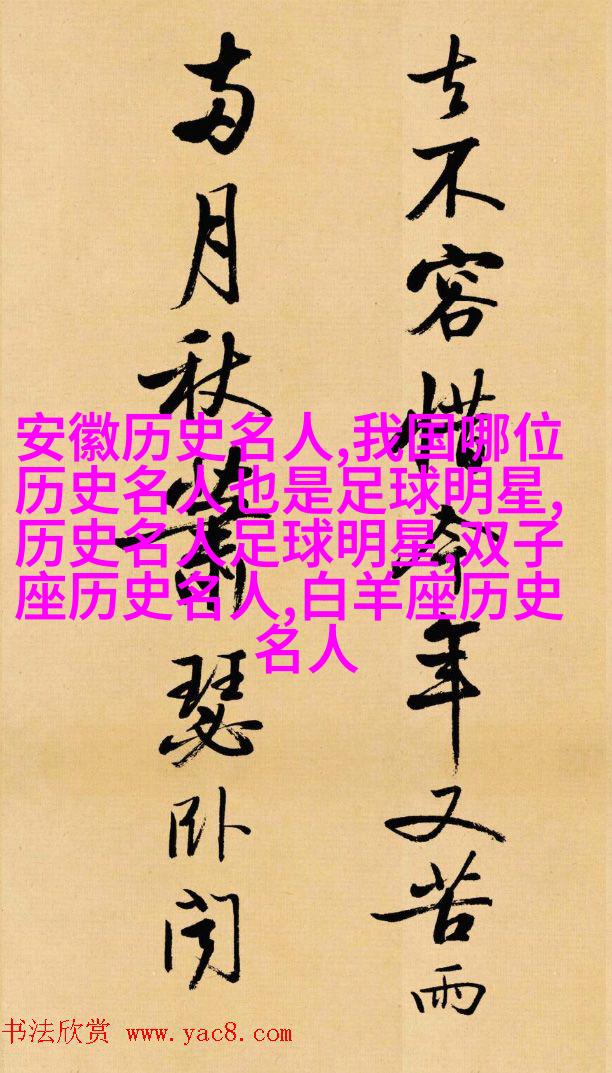 去不容惜今年又苦雨
两月秋蕭瑟卧闻
安徽历史名人,我国哪位
历史名人也是足球明星,
历史名人足球明星,双子
座历史名人,白羊座历史
名人
书法欣赏 www.yac8.com